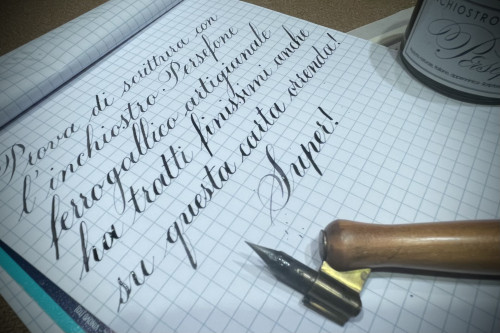 Prova di scrittura con
l'inchiostro Persefone
ferrogallico artigianale
ha tratti finissimi anche
su questa carta orrenda!
Super!